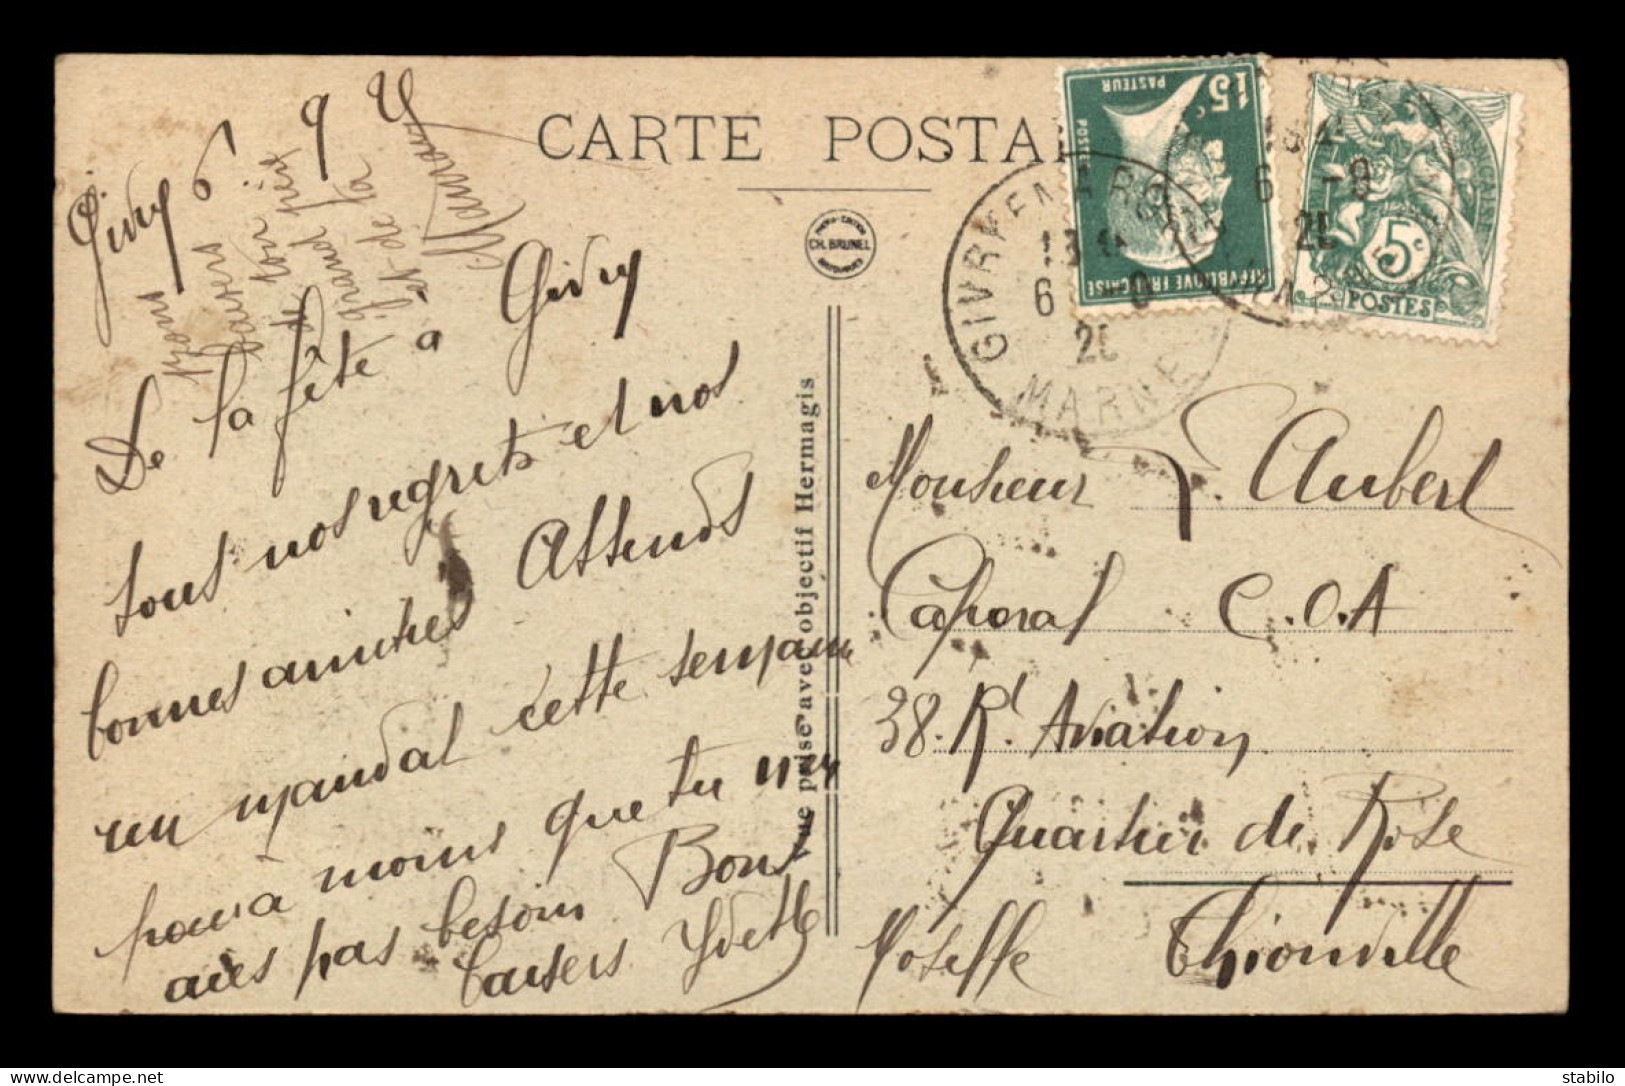 CARTE POSTALE
Givry 6 9 25
bons
baisers
de ton
grand frère
et de la
De la fête a Givry
tous nos regrets et nos
bonnes amities Attends
un mandat cette semaine
pour a moins que tu n'en
aies pas besoin Bons
baisers Yvette
PHOTO-EDITION
CH. BRUNEL
Vue prise avec objectif Hermagis
15c
PASTEUR
POSTES
REPUBLIQUE FRANÇAISE
5c
POSTES
GIVRY EN ARGONNE
13
6 -9
25
MARNE
Monsieur Aubert
Caporal C.O.A
38. Rt. Aviation
Quartier de Rose
Moselle Thionville
stabilo